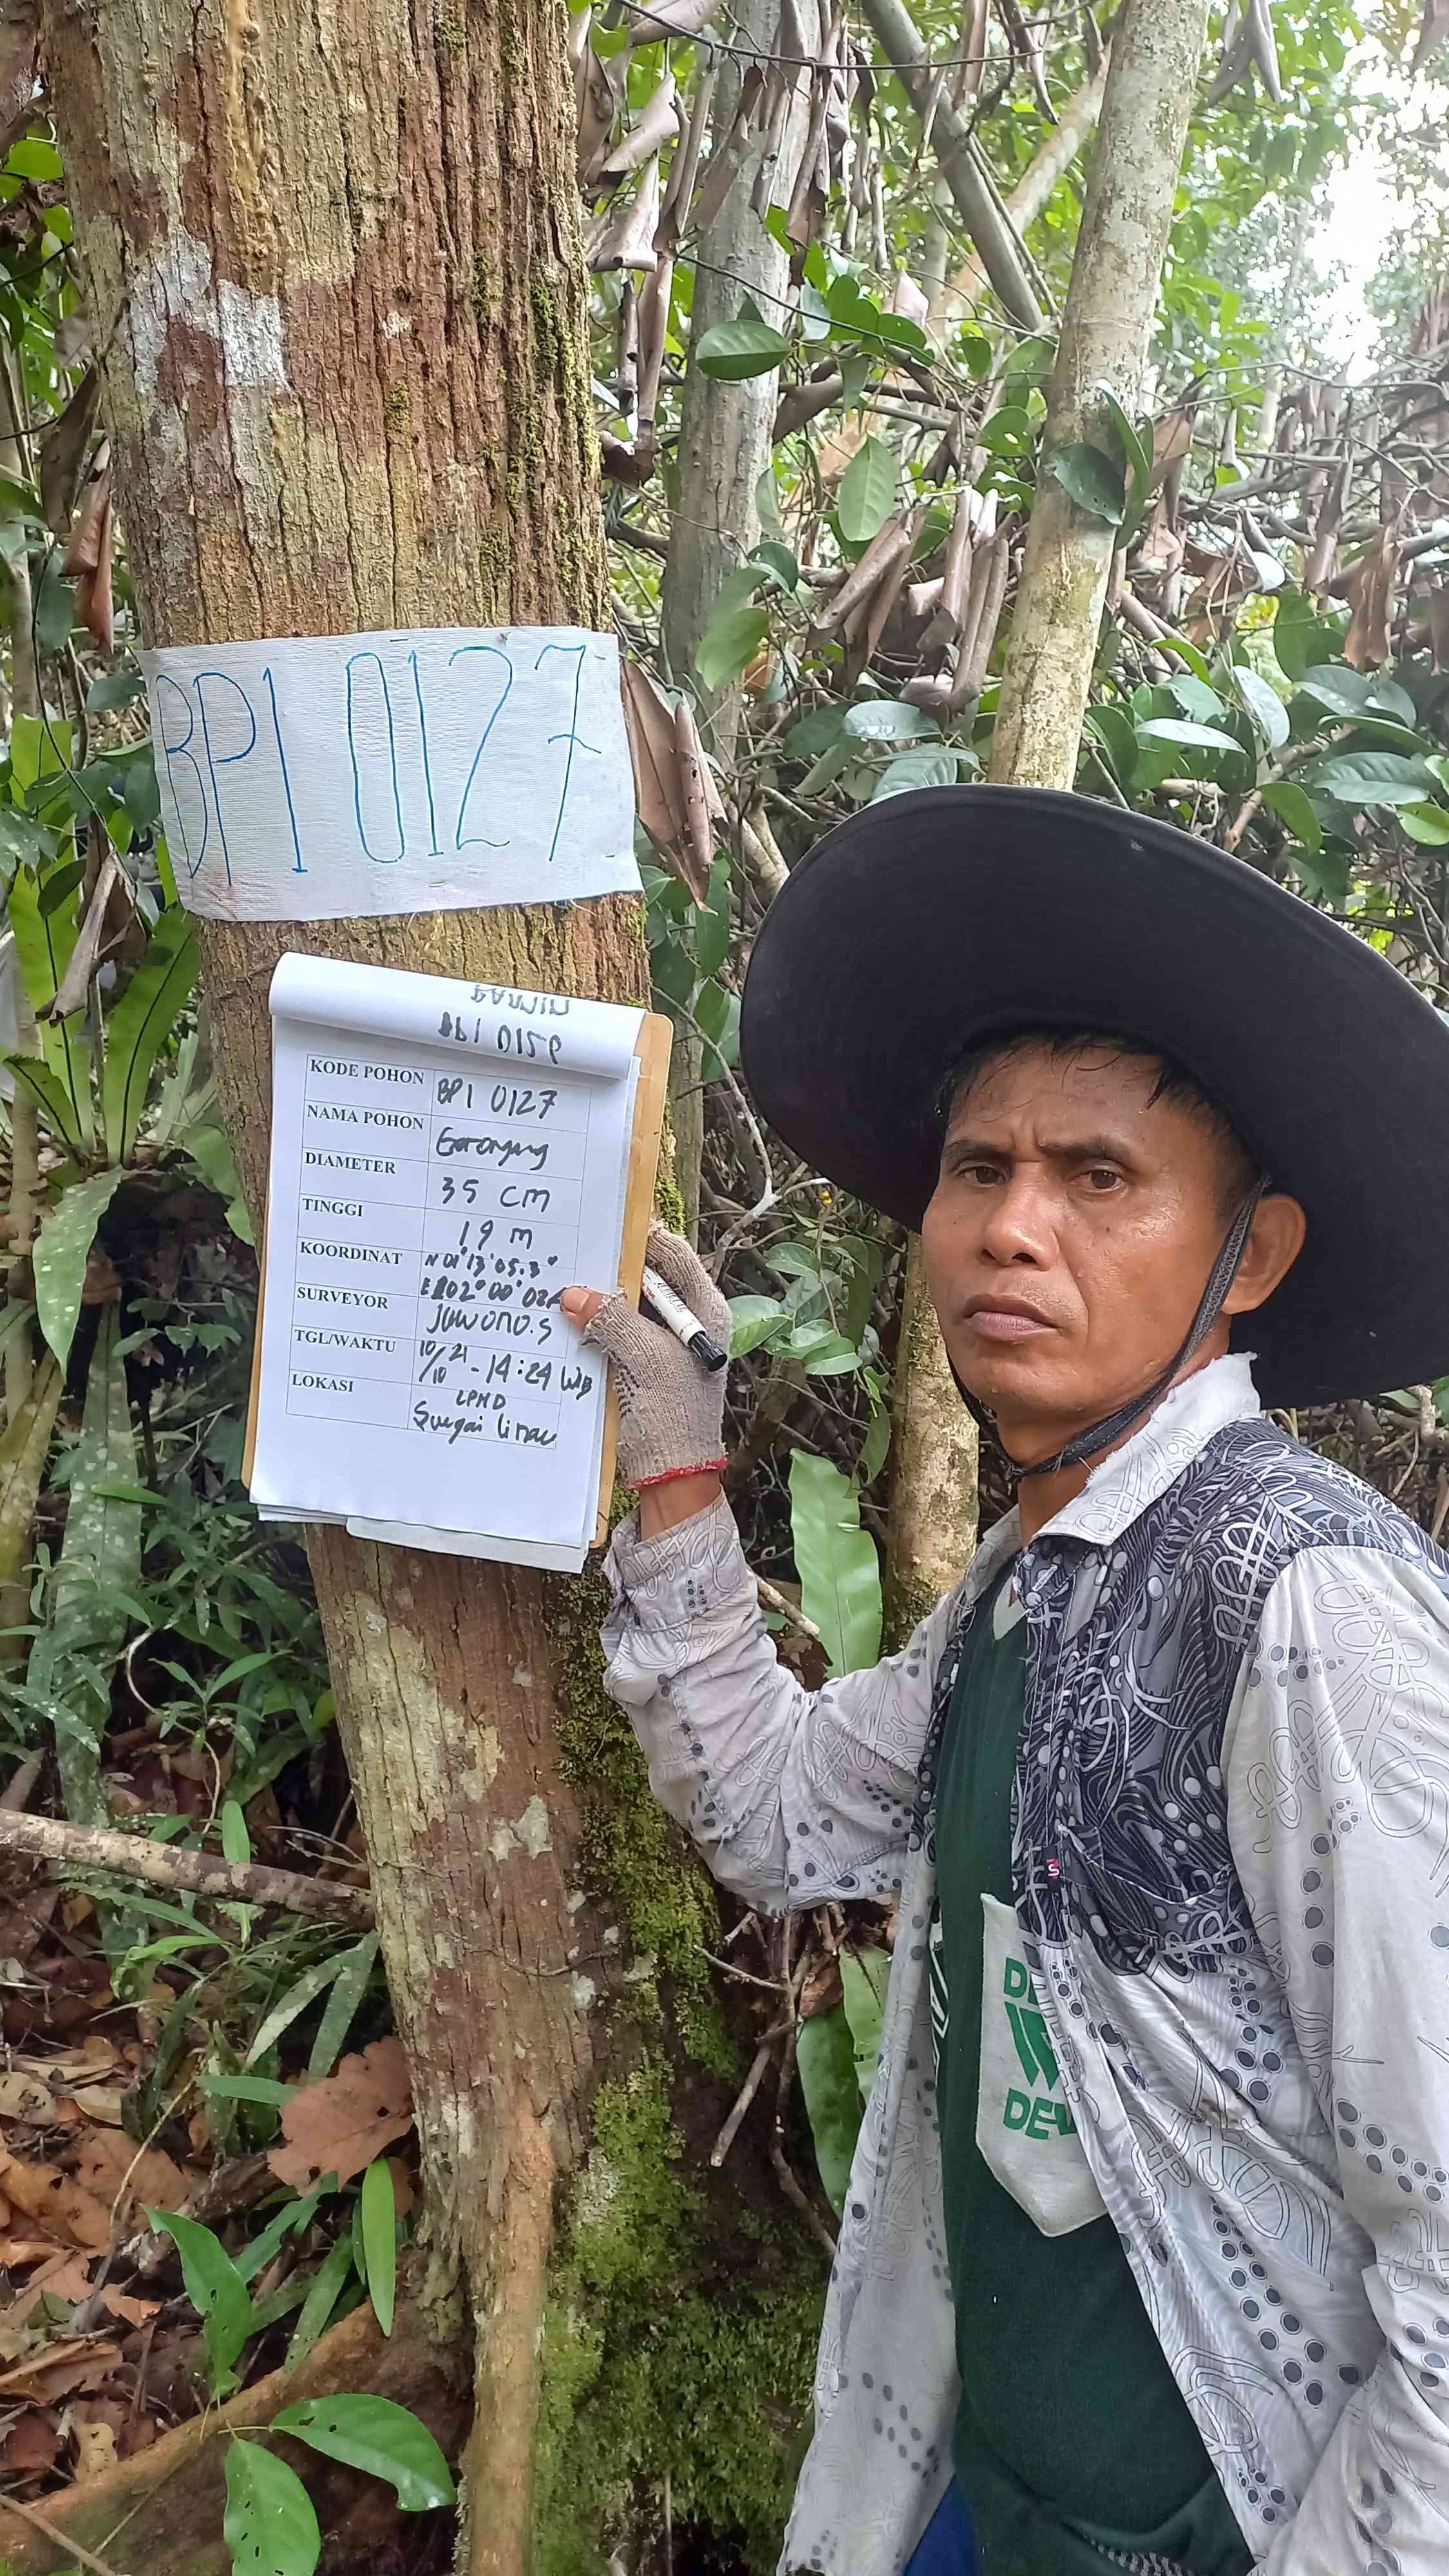 BP1 0127
KODE POHON BP1 0127
NAMA POHON Geronggang
DIAMETER 35 CM
TINGGI 19 m
KOORDINAT N 01° 13' 05.3"
E 102° 00' 02
SURVEYOR JUWONO.S
TGL/WAKTU 10/10 21 - 14:24 WIB
LOKASI LPHD
Sungai linau
DE